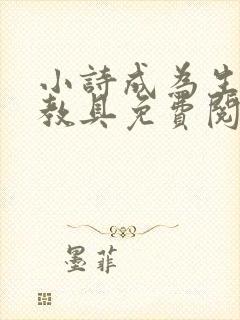 小詩成為生
教具免費閱
墨菲